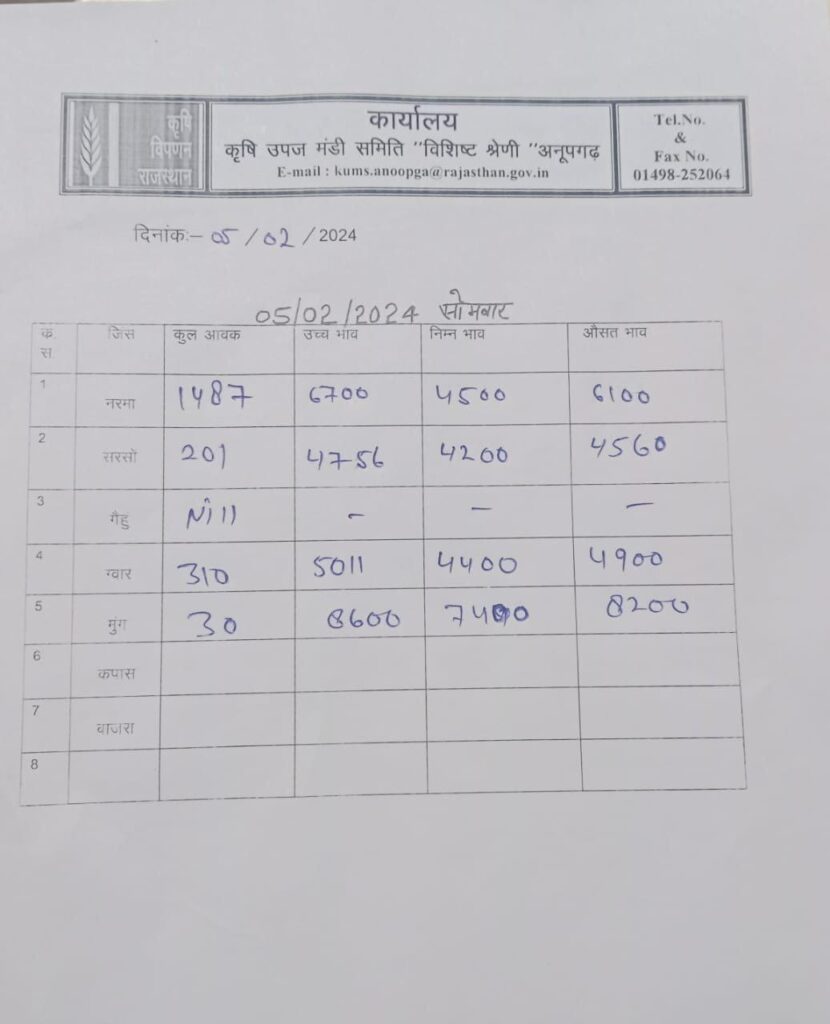 कृषि
विपणन
राजस्थान
कार्यालय
कृषि उपज मंडी समिति "विशिष्ट श्रेणी "अनूपगढ़
E-mail : kums.anoopga@rajasthan.gov.in
Tel.No.
&
Fax No.
01498-252064
दिनांक:– 05/02/2024
05/02/2024 सोमबार
क स जिंस कुल आवक उच्च भाव निम्न भाव औसत भाव
1 नरमा 1487 6700 4500 6100
2 सरसो 201 4756 4200 4560
3 गैहु Nill - - -
4 ग्वार 310 5011 4400 4900
5 मुंग 30 8600 7400 8200
6 कपास
7 बाजरा
8